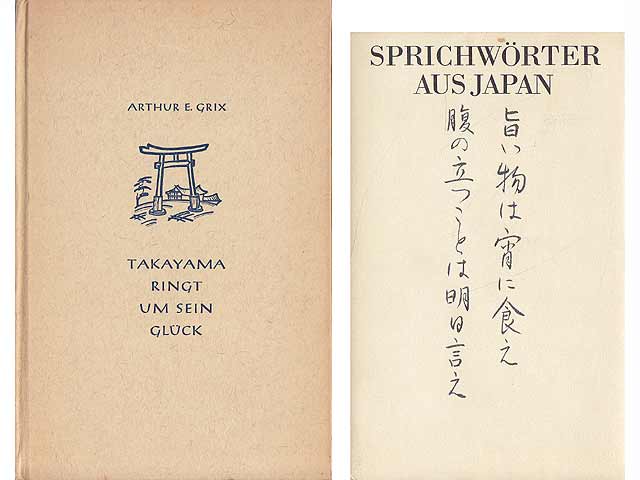 ARTHUR E. GRIX
TAKAYAMA
RINGT
UM SEIN
GLÜCK
SPRICHWÖRTER
AUS JAPAN
旨い物は宵に食え
腹の立つことは明日言え